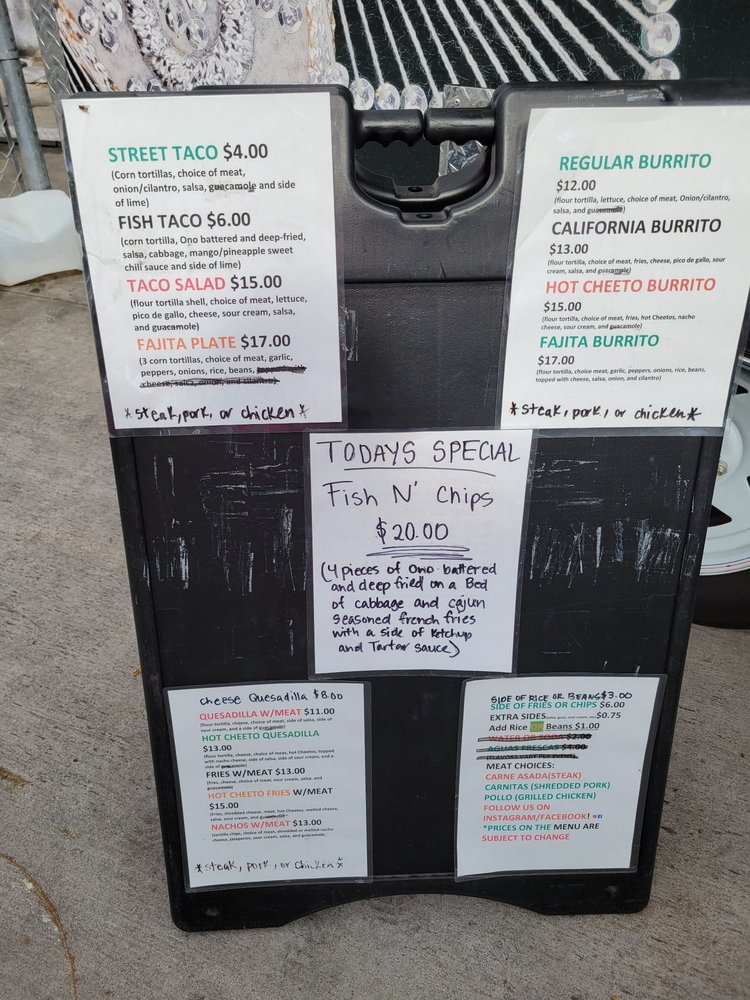 STREET TACO $4.00
(Corn tortillas, choice of meat,
onion/cilantro, salsa, guacamole and side
of lime)
FISH TACO $6.00
(corn tortilla, Ono battered and deep-fried,
salsa, cabbage, mango/pineapple sweet
chili sauce and side of lime)
TACO SALAD $15.00
(flour tortilla shell, choice of meat, lettuce,
pico de gallo, cheese, sour cream, salsa,
and guacamole)
FAJITA PLATE $17.00
(3 corn tortillas, choice of meat, garlic,
peppers, onions, rice, beans, topped with
cheese, salsa, onion, and cilantro)
*steak, pork, or chicken*
REGULAR BURRITO
$12.00
(flour tortilla, lettuce, choice of meat, Onion/cilantro,
salsa, and guacamole)
CALIFORNIA BURRITO
$13.00
(flour tortilla, choice of meat, fries, cheese, pico de gallo, sour
cream, salsa, and guacamole)
HOT CHEETO BURRITO
$15.00
(flour tortilla, choice of meat, fries, hot Cheetos, nacho
cheese, sour cream, and guacamole)
FAJITA BURRITO
$17.00
(flour tortilla, choice of meat, garlic, peppers, onions, rice, beans,
topped with cheese, salsa, onion, and cilantro)
*steak, pork, or chicken*
TODAYS SPECIAL
Fish N' Chips
$20.00
(4 pieces of Ono battered
and deep fried on a Bed
of cabbage and cajun
seasoned french fries
with a side of Ketchup
and Tartar sauce)
cheese Quesadilla $8.00
QUESADILLA W/MEAT $11.00
(flour tortilla, cheese, choice of meat, side of salsa, side of
sour cream, and a side of guacamole)
HOT CHEETO QUESADILLA
$13.00
(flour tortilla, cheese, choice of meat, hot Cheetos, topped
with nacho cheese, side of salsa, side of sour cream, and a
side of guacamole)
FRIES W/MEAT $13.00
(fries, cheese, choice of meat, sour cream, salsa, and
guacamole)
HOT CHEETO FRIES W/MEAT
$15.00
(Fries, shredded cheese, meat, hot Cheetos, melted cheese,
salsa, sour cream, and guacamole)
NACHOS W/MEAT $13.00
(tortilla chips, choice of meat, shredded or melted nacho
cheese, jalapenos, sour cream, salsa, and guacamole
*steak, pork, or chicken*
SIDE OF RICE OR BEANS $3.00
SIDE OF FRIES OR CHIPS $6.00
EXTRA SIDES $0.75
Add Rice Beans $1.00
WATER OR SODA $2.00
AGUAS FRESCAS $4.00
(FLAVORS VARY PER EVENT)
MEAT CHOICES:
CARNE ASADA(STEAK)
CARNITAS (SHREDDED PORK)
POLLO (GRILLED CHICKEN)
FOLLOW US ON
INSTAGRAM/FACEBOOK!
*PRICES ON THE MENU ARE
SUBJECT TO CHANGE